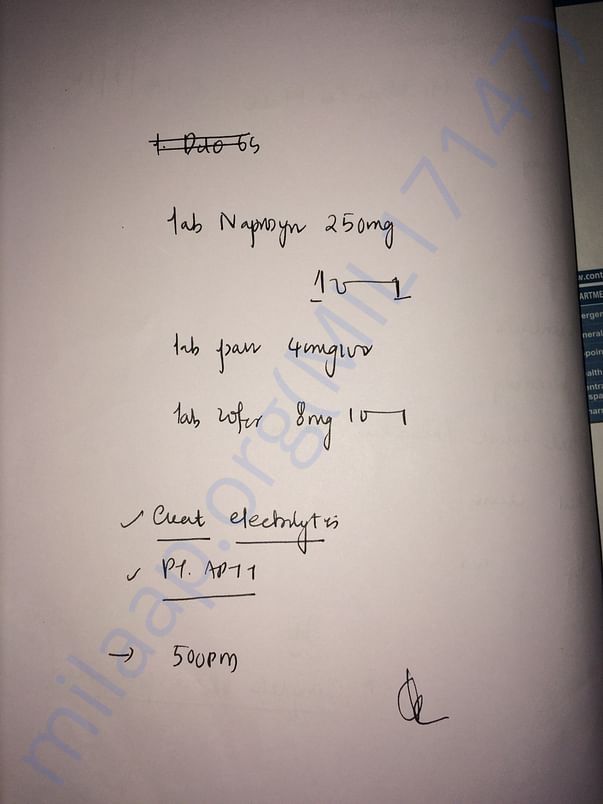 Tab Naprosyn 250mg
1 0 1
Tab pan 40mg 100
Tab zofer 8mg 1 0 1
✓ Creat electrolytes
✓ PT. APTT
→ 500pm
milaap.org(MIL17147)
w.cont
ARTME
ergen
neral
ppoin
ealth
entra
spa
har